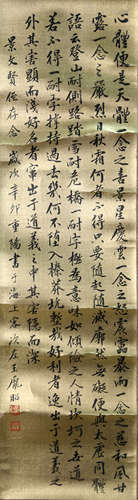 心體便是天體一念之喜景星慶雲一念之怒震雷暴雨一念之慈和風甘
露一念之嚴烈日秋霜何者少得只要隨起隨滅廓然無礙便與太虛同體
語云登山耐側路踏雪耐危橋一耐字極有意味如傾險之人情坎坷之世道
若不得一耐字撐持過去幾何不墮入榛莽坑塹哉好利者逸出于道義之
外其害顯而淺好名者竄入于道義之中其害隱而深
景文賢侄存念 歲次辛卯重陽書于海上